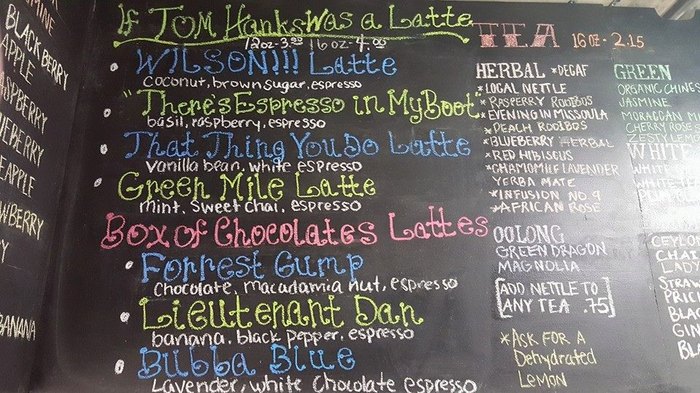 BLACKBERRY
APPLE
BERRY
BANANA
If Tom Hanks Was a Latte
12oz-3.93 16oz-4.03
WILSON!!! Latte
coconut, brown sugar, espresso
"There's Espresso in My Boot"
basil, raspberry, espresso
That Thing You Do Latte
Vanilla bean, white espresso
Green Mile Latte
mint, sweet chai, espresso
Box of Chocolates Lattes
Forrest Gump
Chocolate, macadamia nut, espresso
Lieutenant Dan
banana, black pepper, espresso
Bubba Blue
Lavender, white chocolate espresso
TEA 16oz - 2.15
HERBAL *DECAF
*LOCAL NETTLE
*RASPBERRY ROOIBUS
*EVENING IN MISSOULA
*PEACH ROOIBUS
*BLUEBERRY HERBAL
*RED HIBISCUS
*CHAMOMILE LAVENDER
YERBA MATE
*INFUSION NO. 9
*AFRICAN ROSE
OOLONG
GREEN DRAGON
MAGNOLIA
[ADD NETTLE TO
ANY TEA .75]
*ASK FOR A
Dehydrated
LEMON
GREEN
ORGANIC
JASMINE
MOROCCAN
CHERRY ROSE
WHITE
WHITE
CEYLON
CHAI